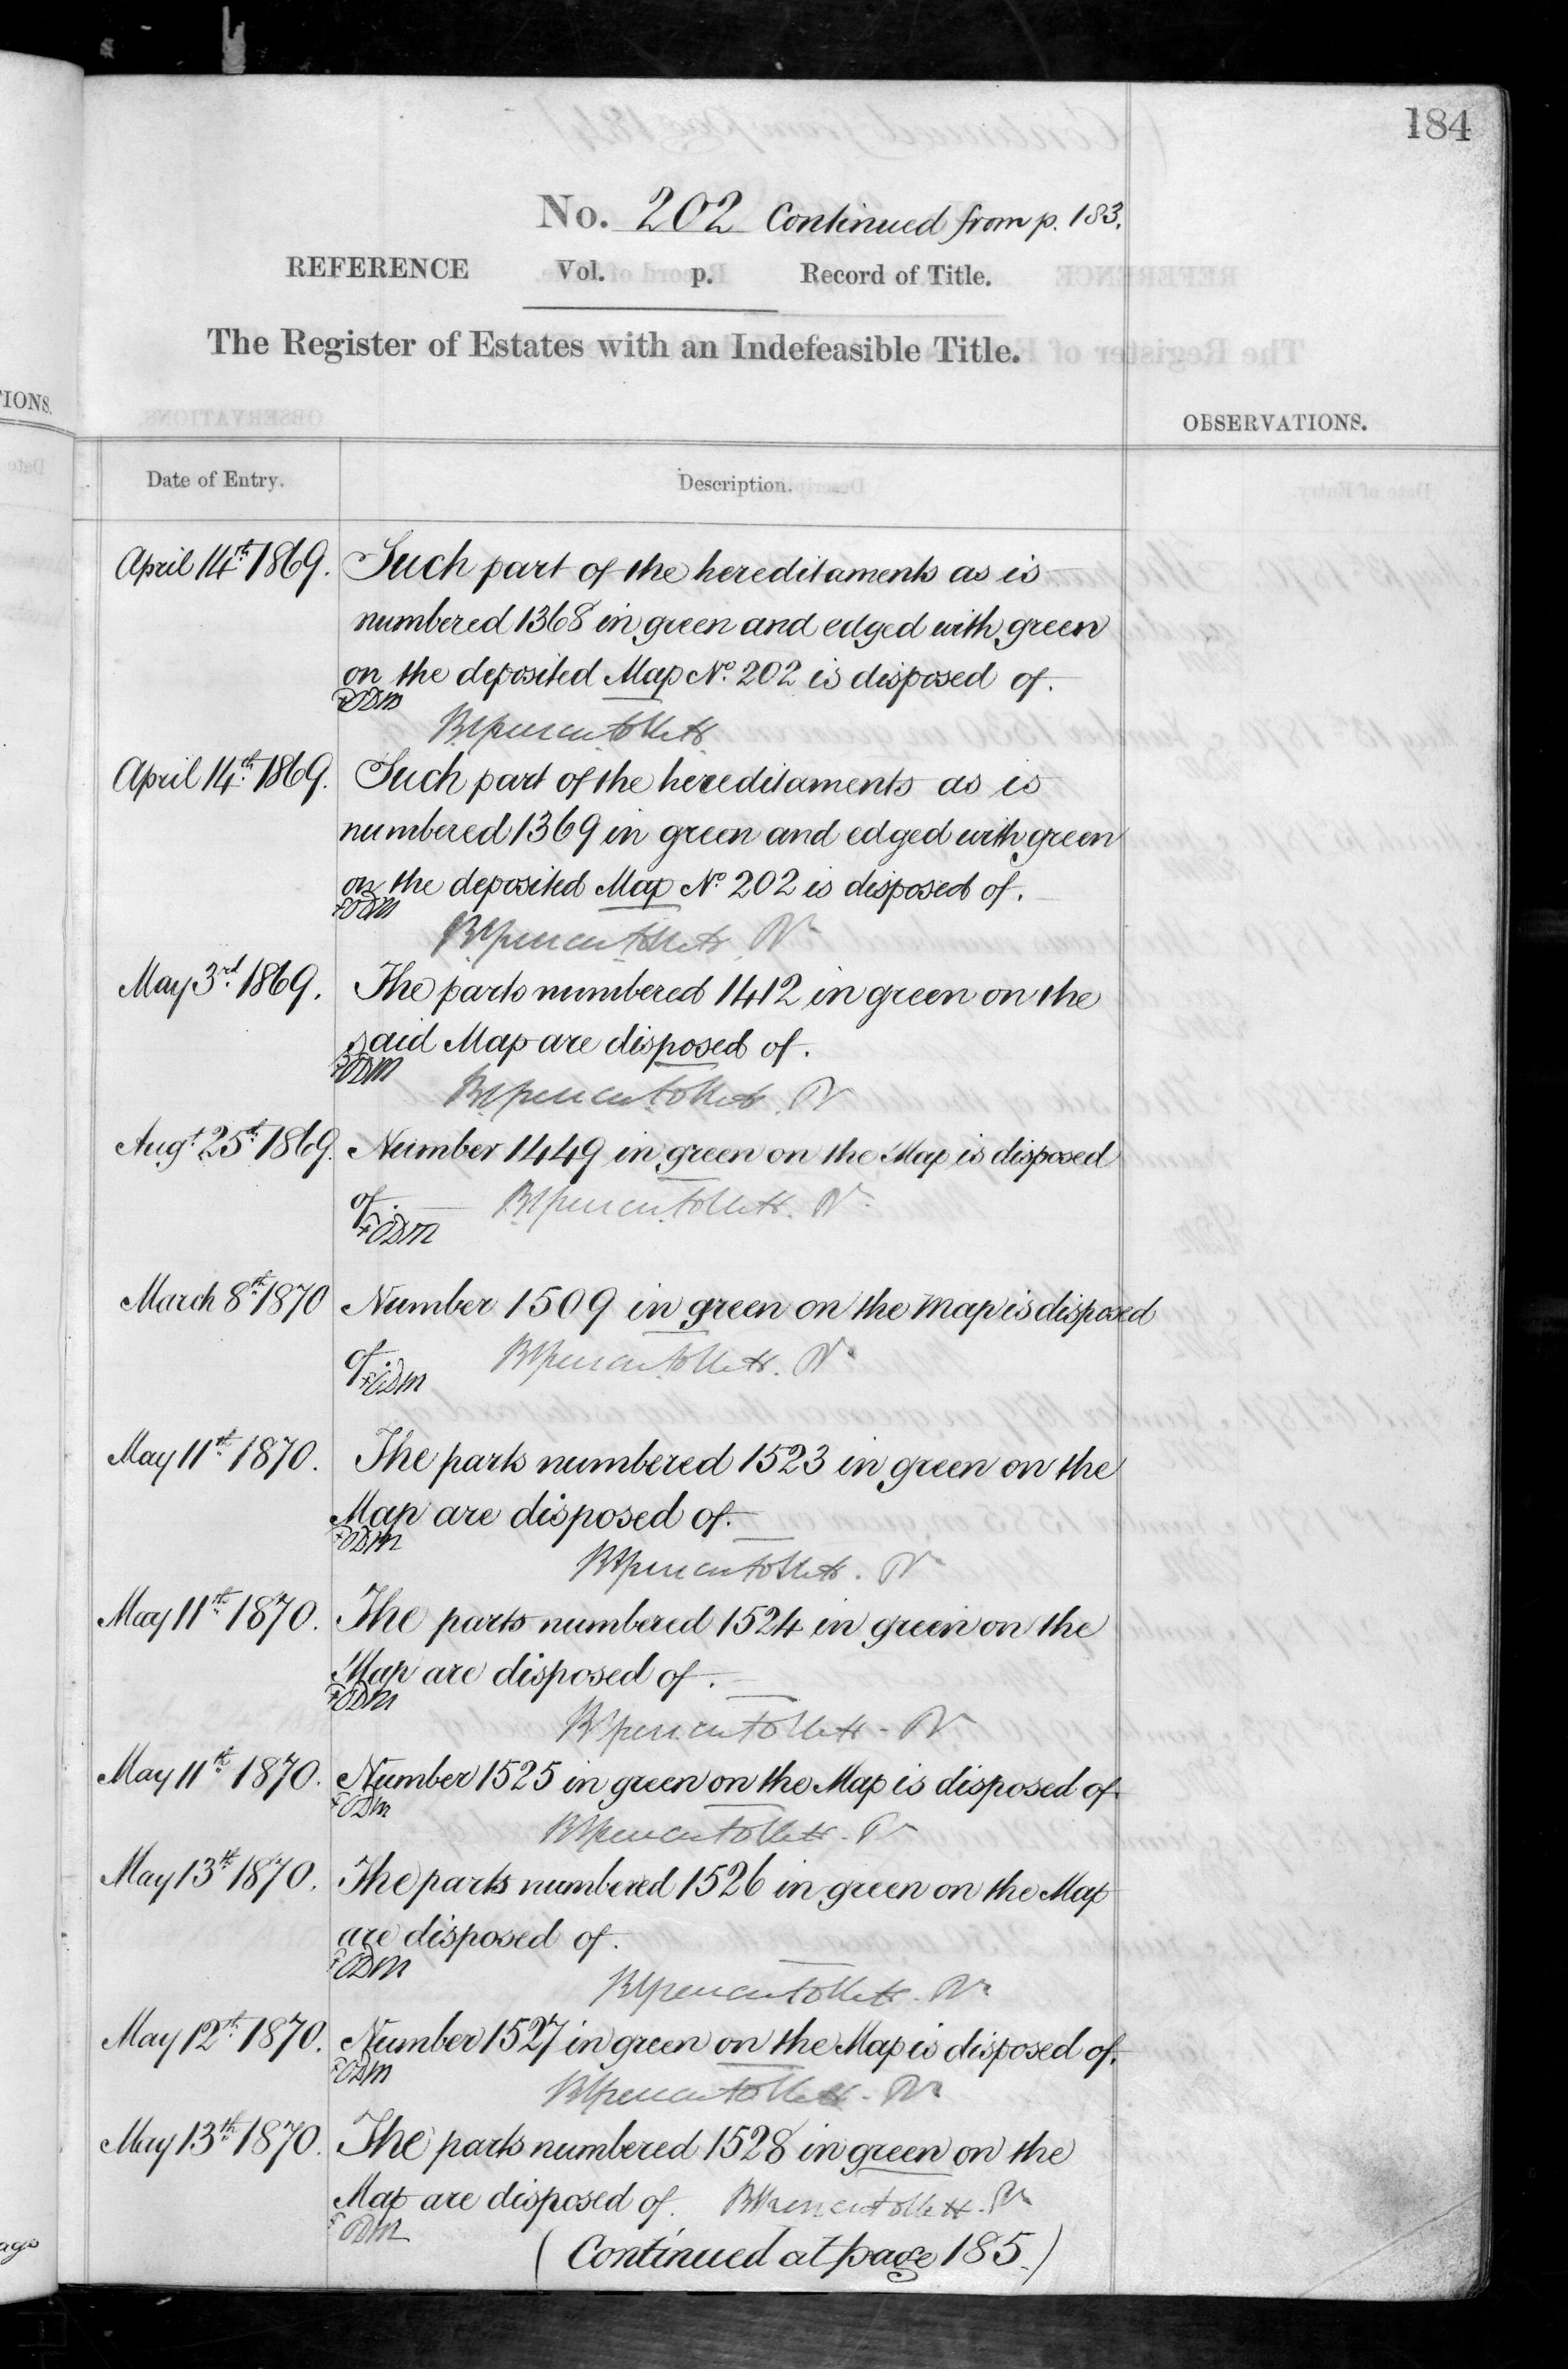 184
No. 202 Continued from p. 183.
REFERENCE Vol. p. Record of Title.
The Register of Estates with an Indefeasible Title.
OBSERVATIONS.
Date of Entry. Description.
April 14th 1869. Such part of the hereditaments as is
numbered 1368 in green and edged with green
on the deposited Map No. 202 is disposed of.
April 14th 1869. Such part of the hereditaments as is
numbered 1369 in green and edged with green
on the deposited Map No. 202 is disposed of.
May 3rd 1869. The parts numbered 1412 in green on the
said Map are disposed of.
Augt. 25th 1869. Number 1449 in green on the Map is disposed
of.
March 8th 1870 Number 1509 in green on the Map is disposed
of.
May 11th 1870. The parts numbered 1523 in green on the
Map are disposed of.
May 11th 1870. The parts numbered 1524 in green on the
Map are disposed of.
May 11th 1870. Number 1525 in green on the Map is disposed of.
May 13th 1870. The parts numbered 1526 in green on the Map
are disposed of.
May 12th 1870. Number 1527 in green on the Map is disposed of.
May 13th 1870. The parts numbered 1528 in green on the
Map are disposed of.
(Continued at page 185.)